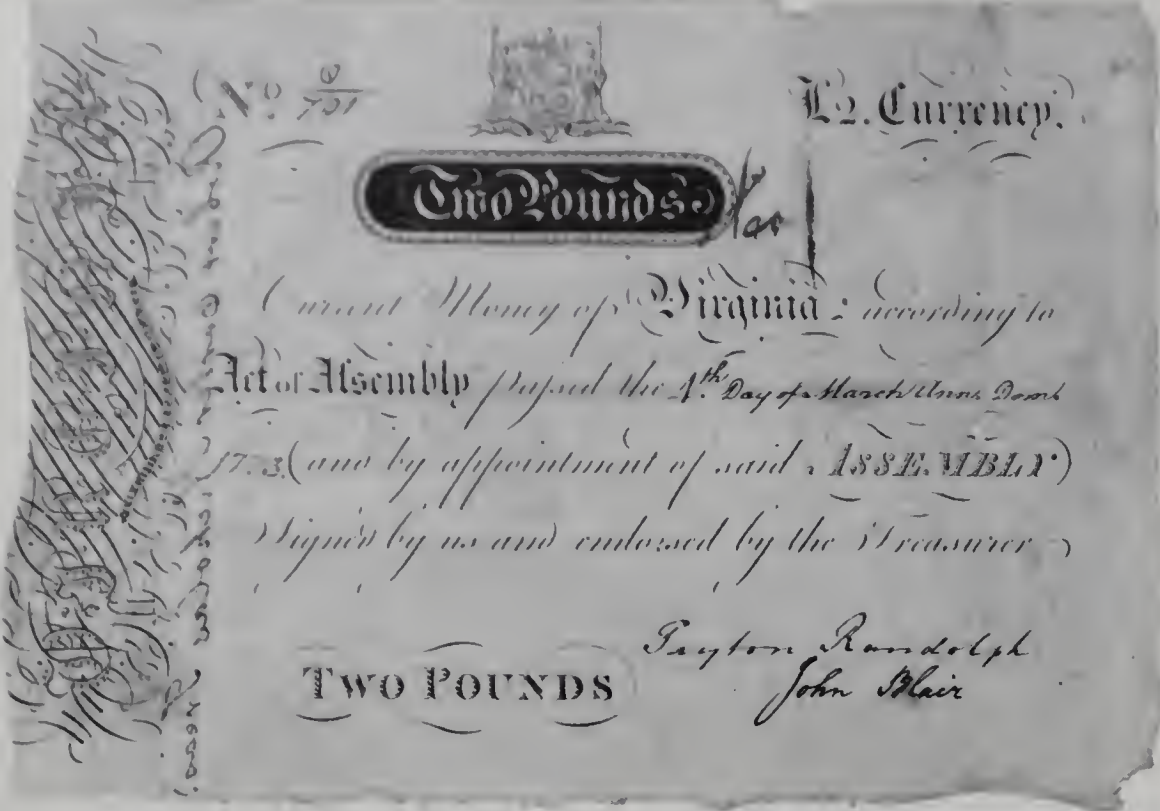 No
£2. Currency.
Two Pounds
Current Money of Virginia: according to
Act of Assembly passed the 4th. Day of March Anno Domi
1773. (and by appointment of said ASSEMBLY)
Signed by us and endorsed by the Treasurer
Peyton Randolph
John Blair
TWO POUNDS